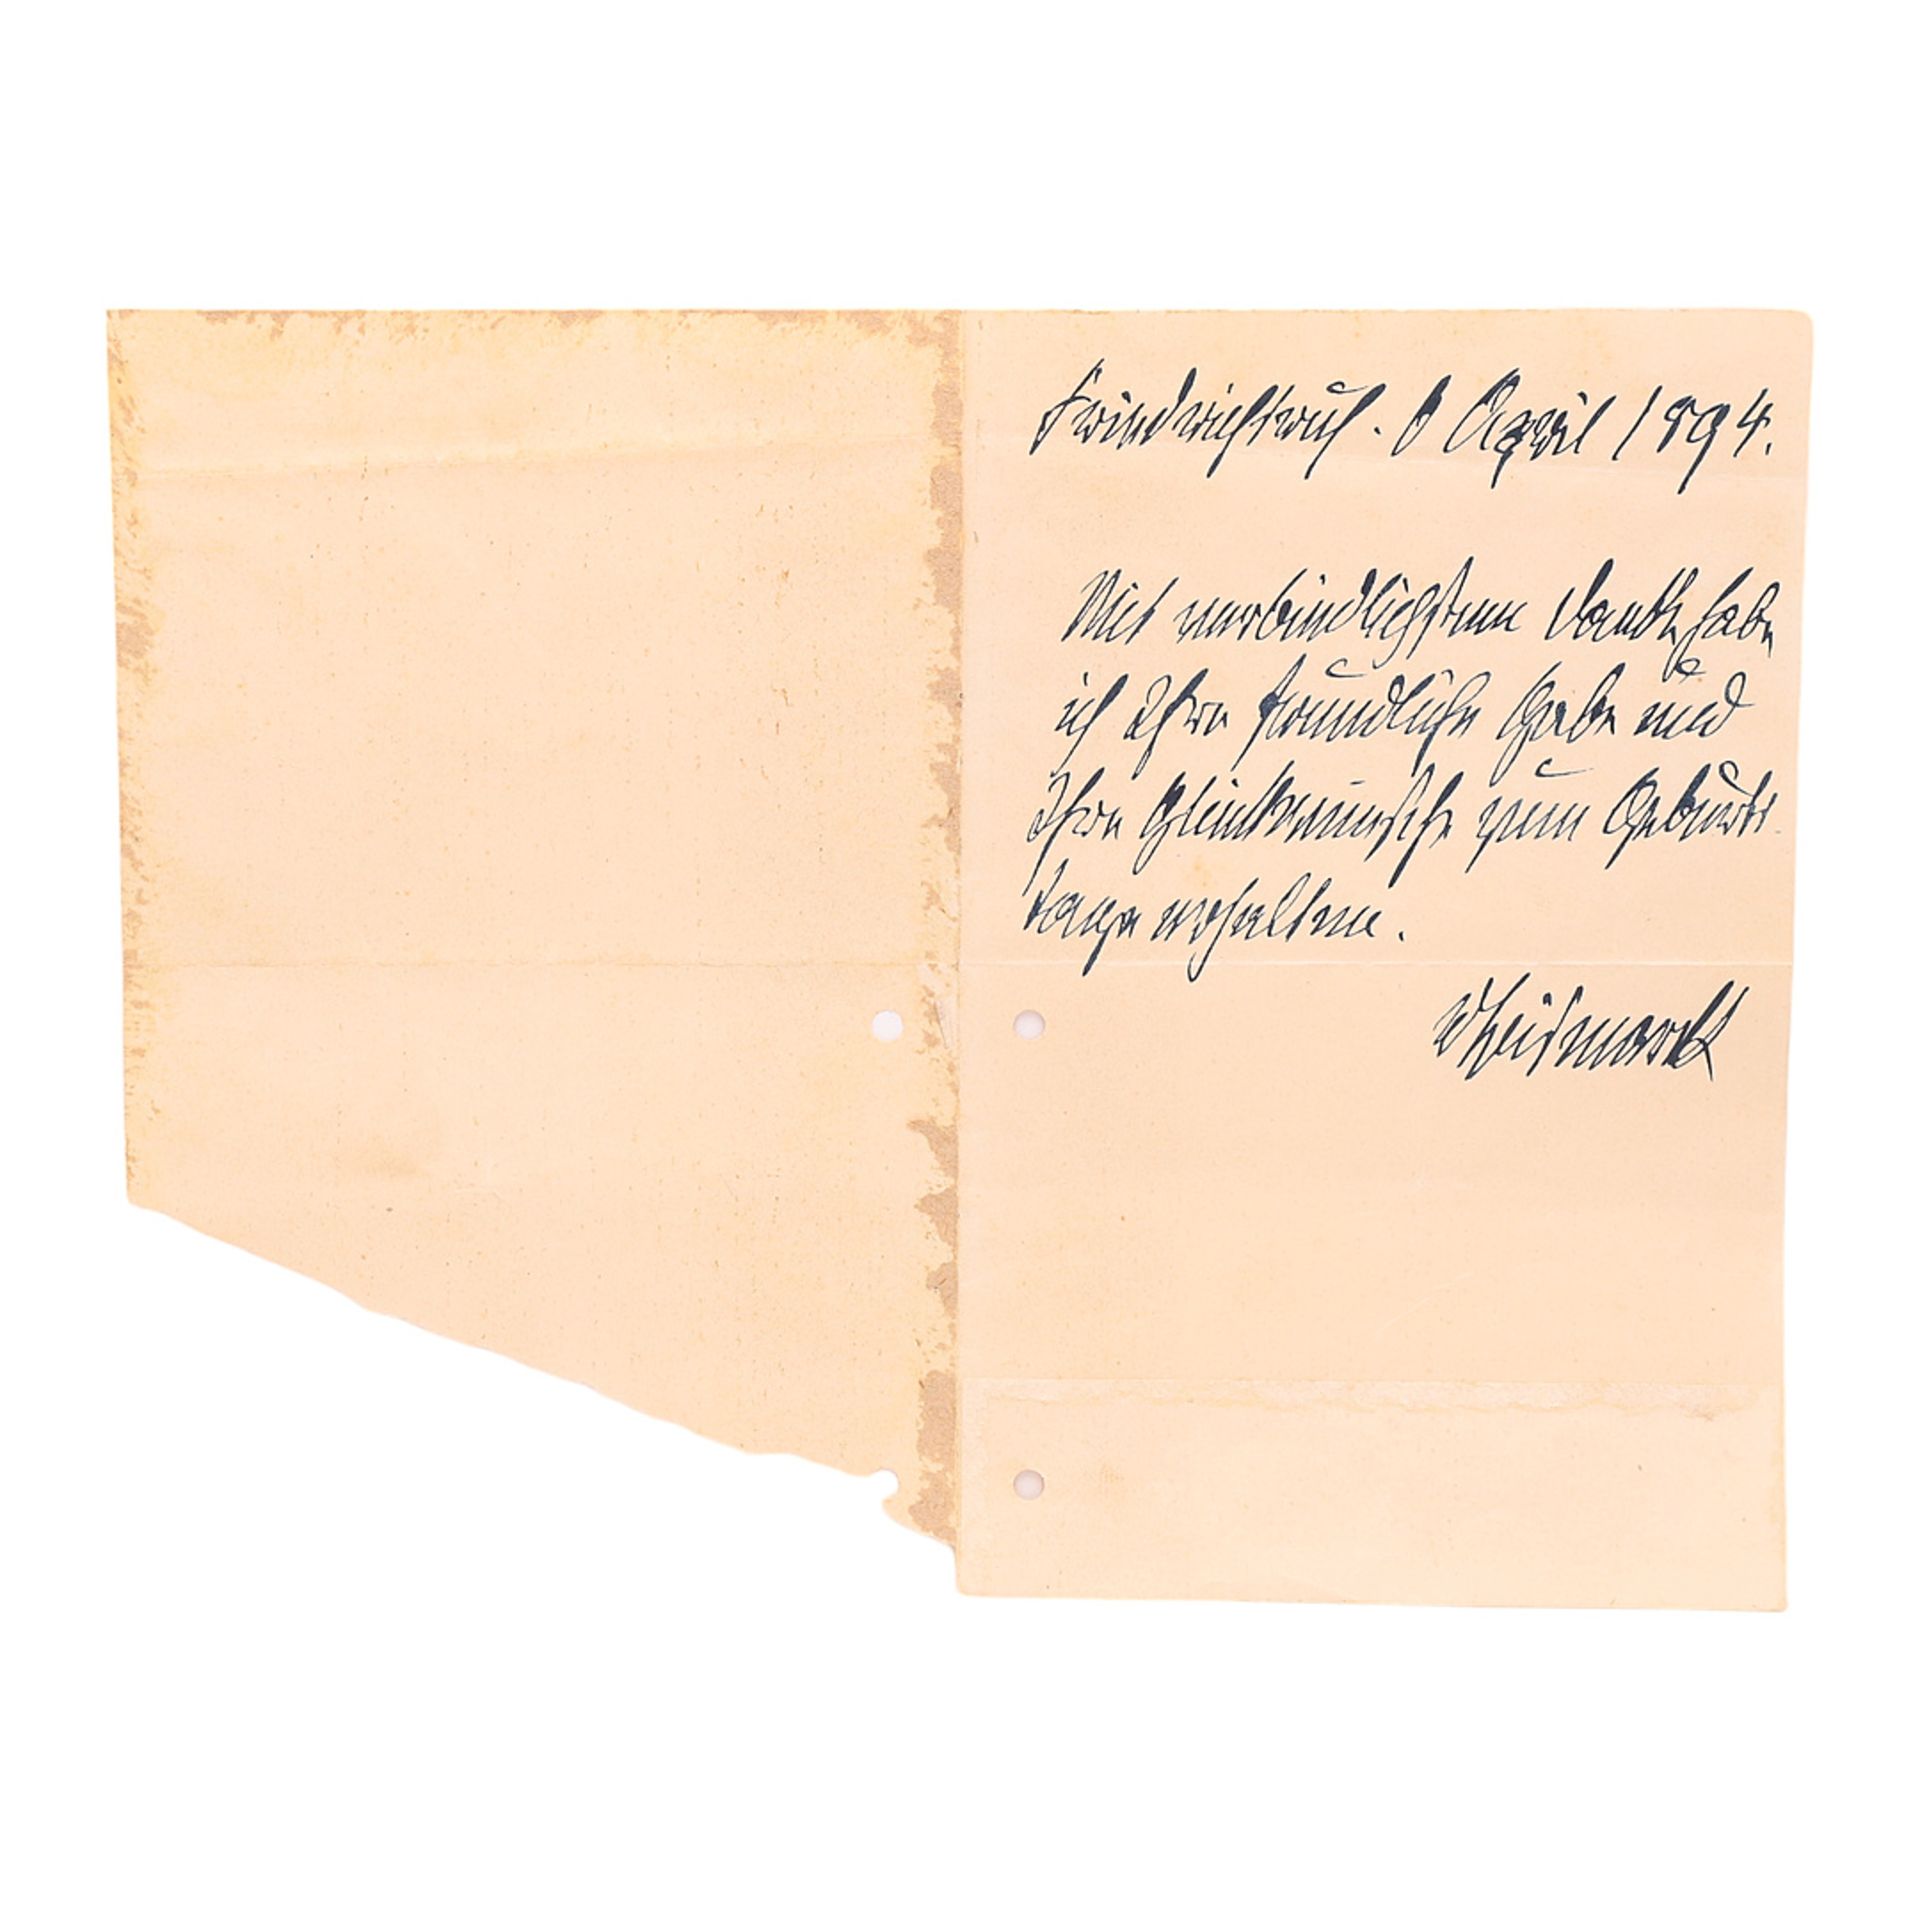 Friedrichsruh. 6 April 1894.
Mit verbindlichstem Danke habe
ich Ihre freundliche Gabe und
Ihre Glückwünsche zum Geburts-
tage erhalten.
vBismarck